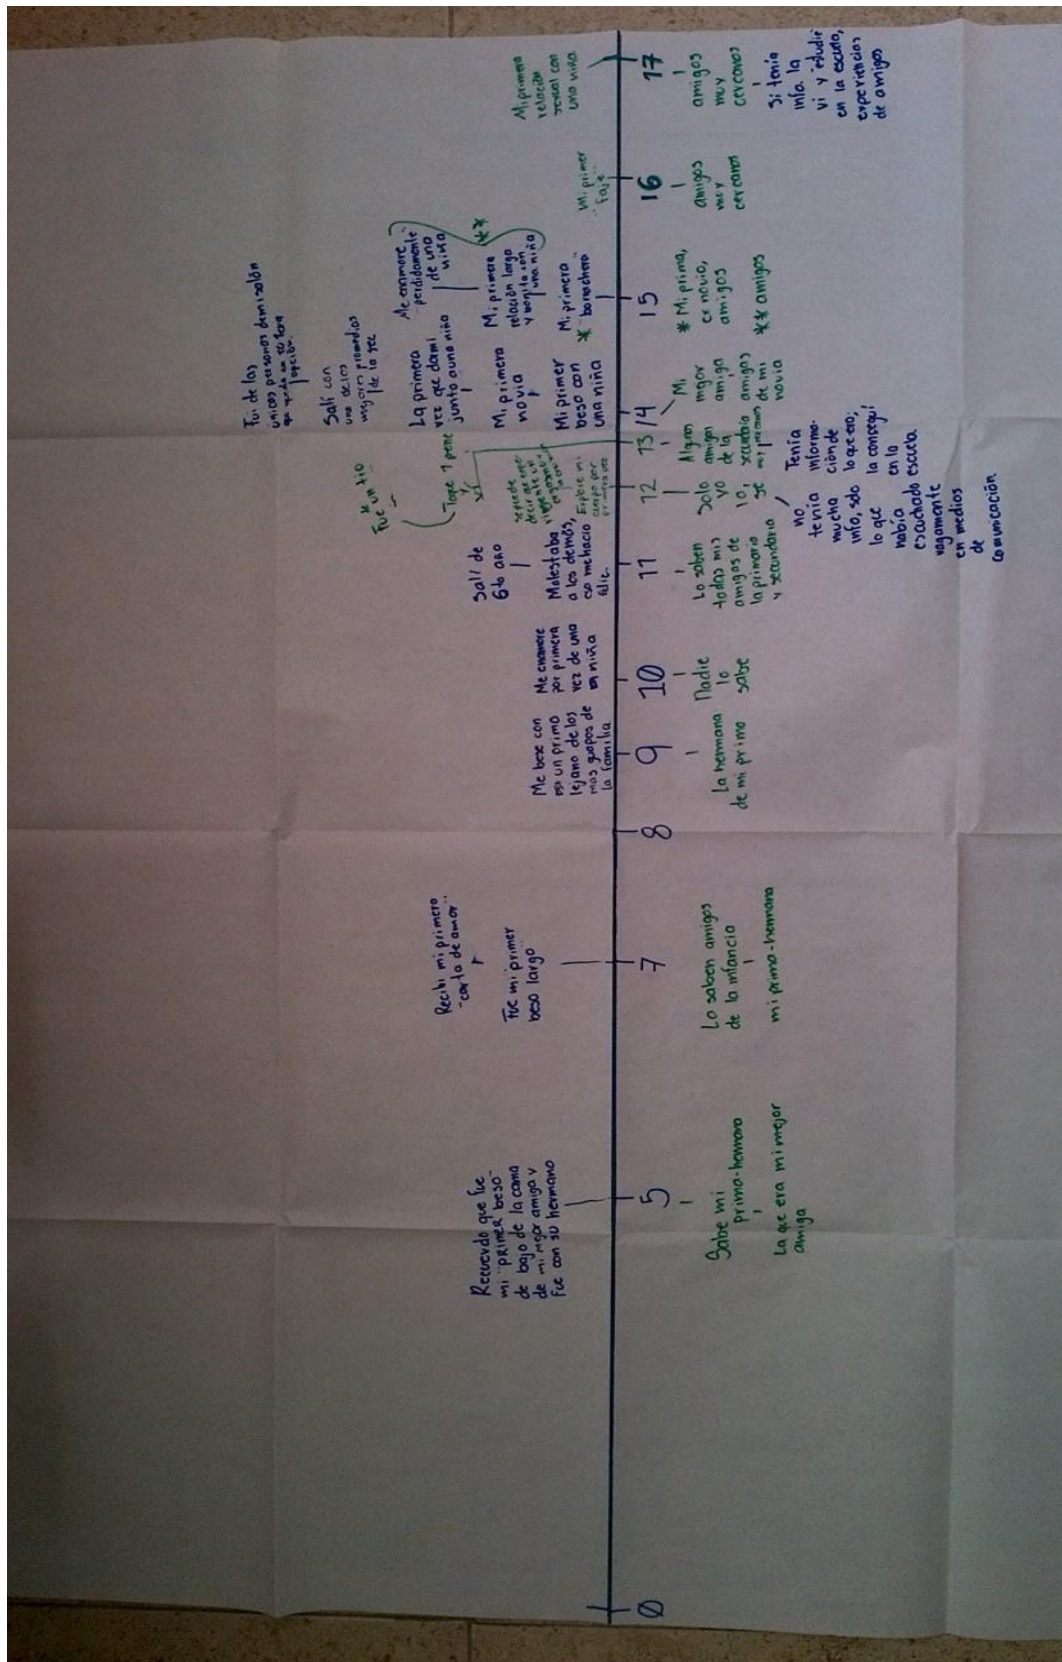 0
Recuerdo que fue
mi "PRIMER beso"
de bajo de la cama
de mi mejor amiga y
fue con su hermano
5
Sabe mi
primo-hermano
y
La que era mi mejor
amiga
Recibi mi primera
"carta de amor"
y
Fue mi primer
beso largo
7
Lo saben amigos
de la infancia
y
mi primo-hermano
8
Me bese con
un primo
lejano de los
mas guapos de
la familia
9
La hermana
de mi primo
Me enamore
por primera
vez de una
niña
10
Nadie
lo
sabe
Salí de
6to año
Molestaba
a los demás,
eso me hacia
feliz.
11
Lo saben
todos mis
amigos de
la primaria
y secundaria
* Fue un tío
Toque 1 pene
y
Explore mi
cuerpo por
primera vez
12
Solo
yo
lo
se
no
tenía
mucha
info, solo
lo que
había
escuchado
vagamente
en medios
de
comunicación
13
Algunos
amigos
de la
secundaria
Tenía
informa-
ción de
lo que era;
la conseguí
en la
escuela
Fui de las
únicas personas de mi salón
que quedo en su 1era
opción.
Salí con
uno de los
mejores promedios
de la sec
La primera
vez que dormi
junto a una niña
Mi primera
novia
y
Mi primer
beso con
una niña
14
Mi
mejor
amiga
y
amigas
de mi
novia
Me enamore
"perdidamente"
de una
niña
**
Mi primera
relación larga
y bonita con
una niña
Mi primera
* "borrachera"
15
* Mi prima,
ex novio,
amigos
** amigos
Mi primer
"faje"
16
amigos
muy
cercanos
Mi primera
relación
sexual con
una niña
17
amigos
muy
cercanos
Si tenía
info. la
vi y estudie
en la escuela,
experiencias
de amigos